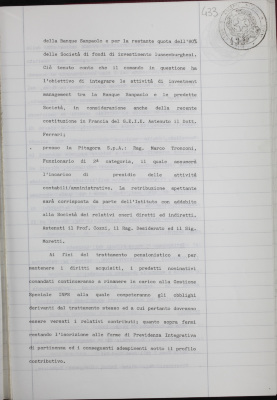 433
della Banque Sanpaolo e per la restante quota dell'80%
della Società di fondi di investimento lussemburghesi.
Ciò tenuto conto che il comando in questione ha
l'obiettivo di integrare le attività di investment
management tra la Banque Sanpaolo e le predette
Società, in considerazione anche della recente
costituzione in Francia del G.E.I.E. Astenuto il Dott.
Ferrari;
- presso la Pitagora S.p.A.: Rag. Marco Tronconi,
Funzionario di 2ª categoria, il quale assumerà
l'incarico di presidio delle attività
contabili/amministrative. La retribuzione spettante
sarà corrisposta da parte dell'Istituto con addebito
alla Società dei relativi oneri diretti ed indiretti.
Astenuti il Prof. Cozzi, il Rag. Desiderato ed il Sig.
Moretti.
Ai fini del trattamento pensionistico e per
mantenere i diritti acquisiti, i predetti nominativi
comandati continueranno a rimanere in carico alla Gestione
Speciale INPS alla quale competeranno gli obblighi
derivanti dal trattamento stesso ed a cui pertanto dovranno
essere versati i relativi contributi; quanto sopra fermi
restando l'iscrizione alle forme di Previdenza Integrativa
di pertinenza ed i conseguenti adempimenti sotto il profilo
contributivo.